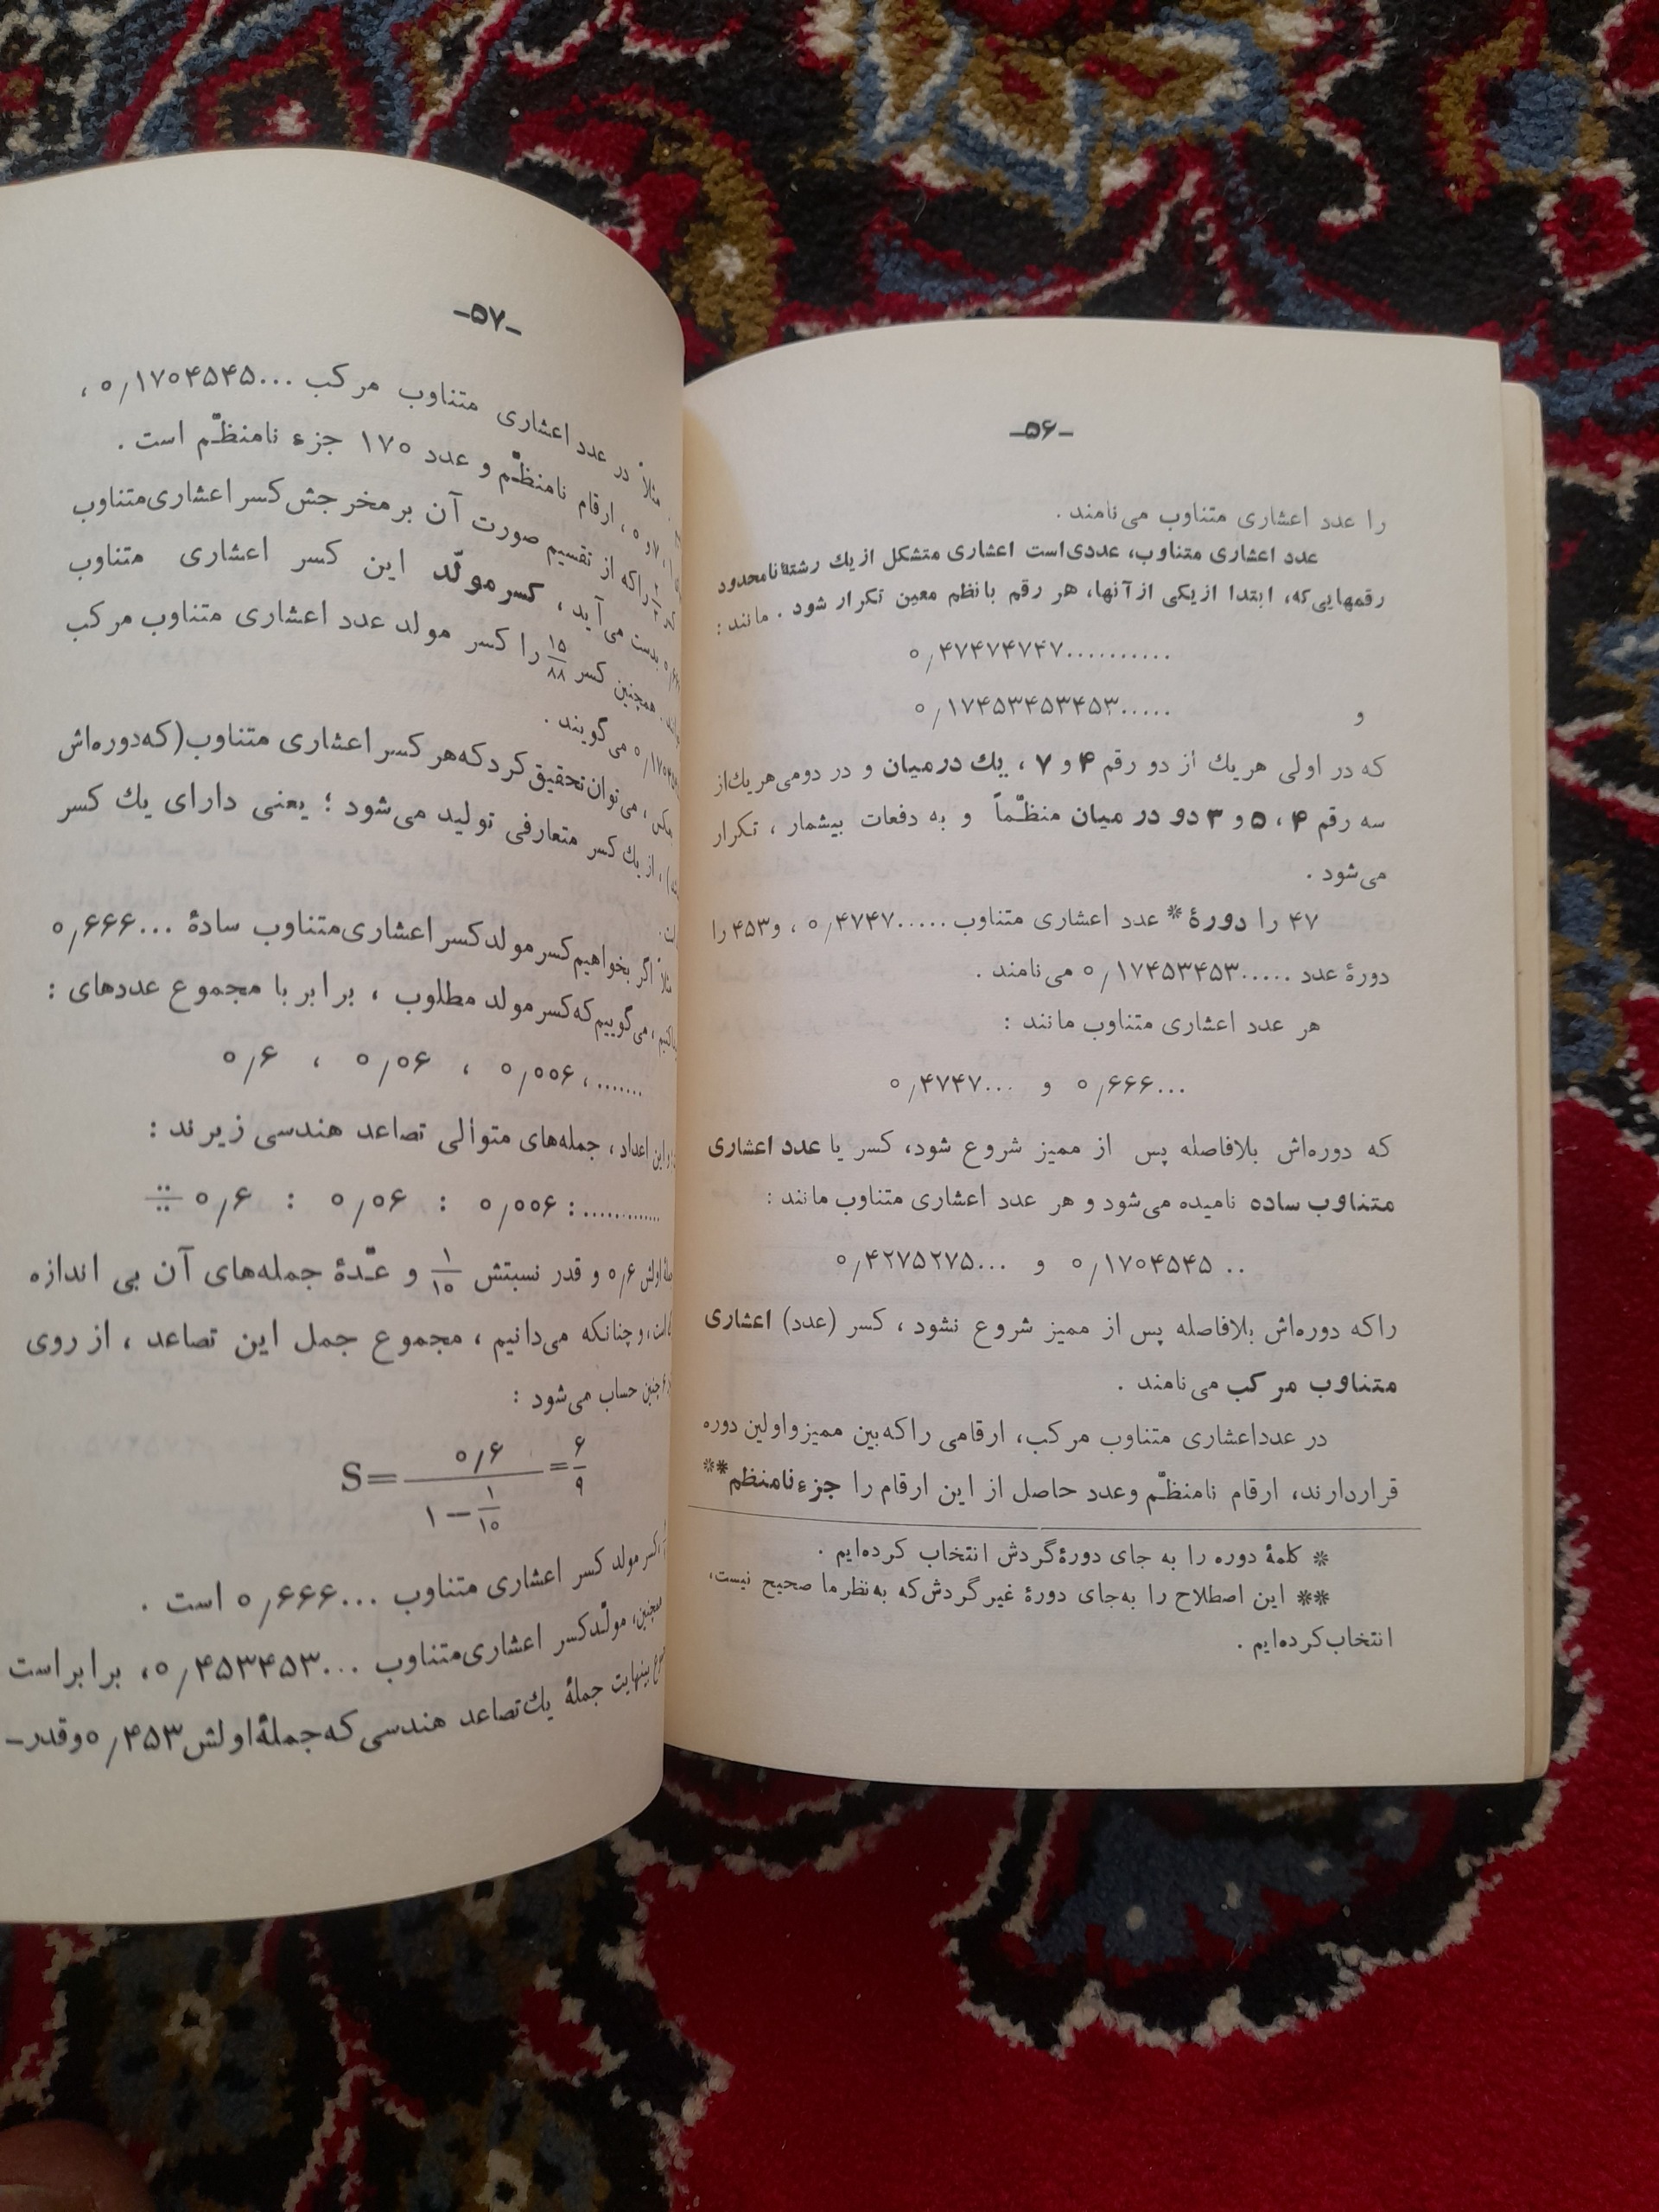 -۵۶-
را عدد اعشاری متناوب می‌نامند.
عدد اعشاری متناوب، عددی‌است اعشاری متشکل از یك رشتهٔ نامحدود
رقمهایی‌که، ابتدا از یکی از آنها، هر رقم با نظم معین تکرار شود. مانند:
۰٫۴۷۴۷۴۷۴۷..........
و ۰٫۱۷۴۵۳۴۵۳۴۵۳.....
که در اولی هر یك از دو رقم ۴ و ۷، یك درمیان و در دومی هر یك از
سه رقم ۴، ۵ و ۳ دو در میان منظّماً و به دفعات بیشمار، تکرار
می‌شود.
۴۷ را دورهٔ* عدد اعشاری متناوب .....۰٫۴۷۴۷، و ۴۵۳ را
دورهٔ عدد .....۰٫۱۷۴۵۳۴۵۳ می‌نامند.
هر عدد اعشاری متناوب مانند:
۰٫۶۶۶... و ۰٫۴۷۴۷...
که دوره‌اش بلافاصله پس از ممیز شروع شود، کسر یا عدد اعشاری
متناوب ساده نامیده می‌شود و هر عدد اعشاری متناوب مانند:
۰٫۱۷۰۴۵۴۵.. و ۰٫۴۲۷۵۲۷۵...
را که دوره‌اش بلافاصله پس از ممیز شروع نشود، کسر (عدد) اعشاری
متناوب مرکب می‌نامند.
در عدد اعشاری متناوب مرکب، ارقامی را که بین ممیز و اولین دوره
قرار دارند، ارقام نامنظّم و عدد حاصل از این ارقام را جزء نامنظم**
* کلمهٔ دوره را به جای دورهٔ گردش انتخاب کرده‌ایم.
** این اصطلاح را به‌جای دورهٔ غیر گردش که به‌نظر ما صحیح نیست،
انتخاب کرده‌ایم.
-۵۷-
مثلاً در عدد اعشاری متناوب مرکب ...۰٫۱۷۰۴۵۴۵،
۷ و ۰، ارقام نامنظّم و عدد ۱۷۰ جزء نامنظّم است.
را که از تقسیم صورت آن بر مخرجش کسر اعشاری متناوب
بدست می‌آید، کسر مولّد این کسر اعشاری متناوب
همچنین کسر ۱۵/۸۸ را کسر مولد عدد اعشاری متناوب مرکب
می‌گویند.
می‌توان تحقیق کرد که هر کسر اعشاری متناوب (که دوره‌اش
از یك کسر متعارفی تولید می‌شود؛ یعنی دارای یك کسر
مثلاً اگر بخواهیم کسر مولد کسر اعشاری متناوب سادهٔ ...۰٫۶۶۶
می‌گوییم که کسر مولد مطلوب، برابر با مجموع عددهای:
۰٫۶ ، ۰٫۰۶ ، ۰٫۰۰۶ ، .......
و این اعداد، جمله‌های متوالی تصاعد هندسی زیرند:
÷÷ ۰٫۶ : ۰٫۰۶ : ۰٫۰۰۶ : ............
اولش ۰٫۶ و قدر نسبتش ۱/۱۰ و عدّهٔ جمله‌های آن بی اندازه
و چنانکه می‌دانیم، مجموع جمل این تصاعد، از روی
چنین حساب می‌شود:
S = ۰٫۶ / (۱ − ۱/۱۰) = ۶/۹
کسر مولد کسر اعشاری متناوب ...۰٫۶۶۶ است.
مولّد کسر اعشاری متناوب ...۰٫۴۵۳۴۵۳، برابر است
بینهایت جملهٔ یك تصاعد هندسی که جملهٔ اولش ۰٫۴۵۳ و قدر-